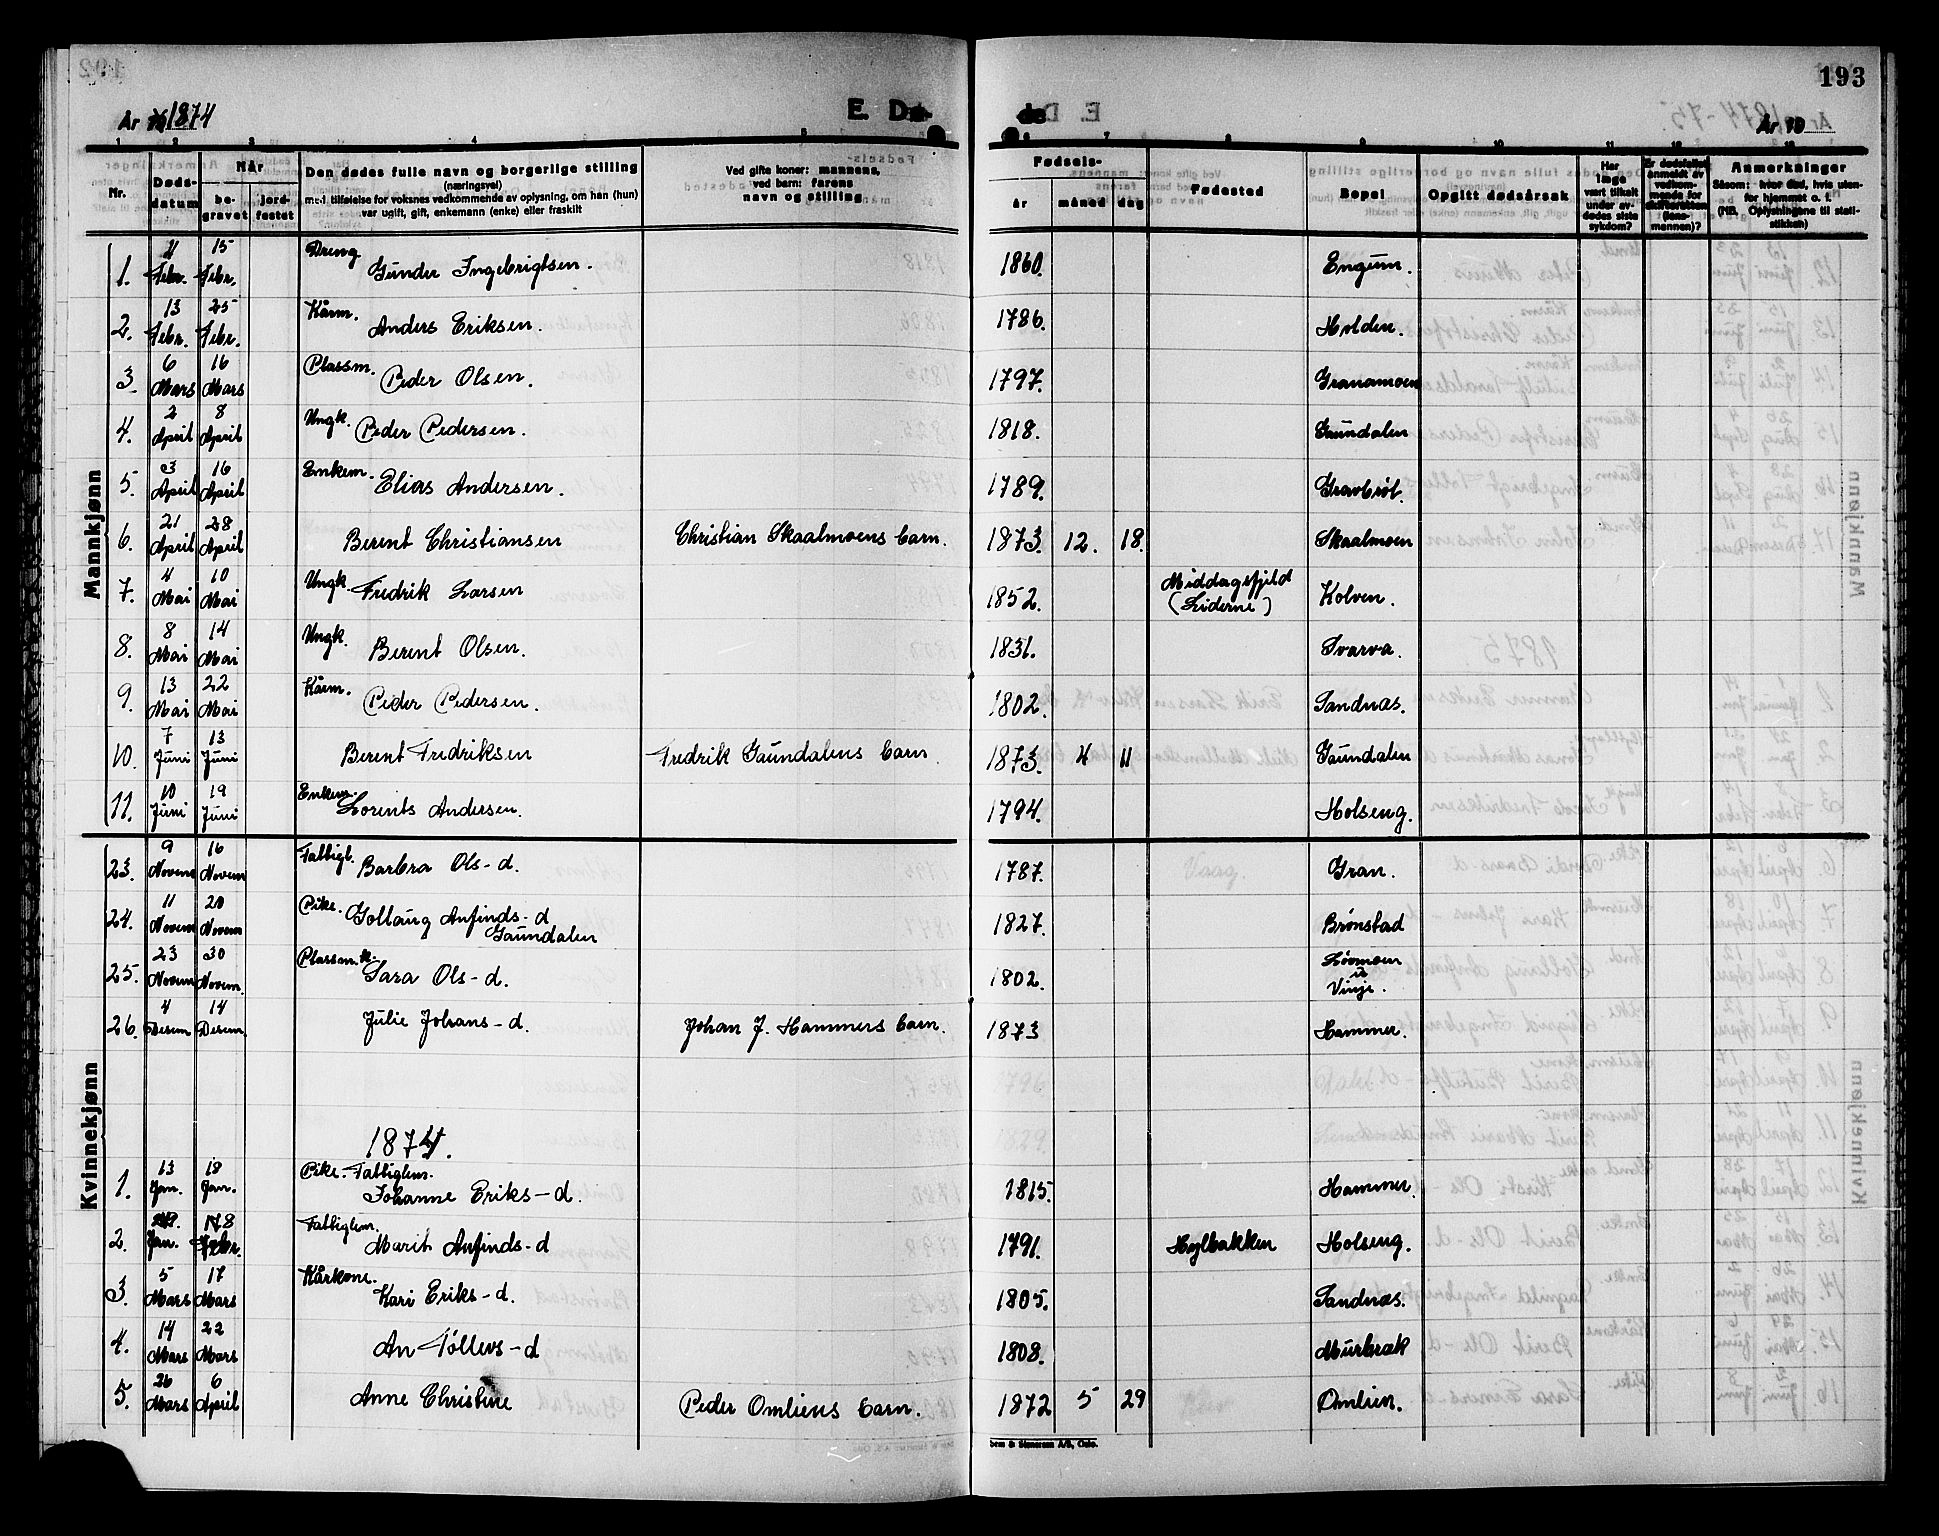 193
År 1874 E. Døde År 19
1 2 3 4 5 6 7 8 9 10 11 12 13
Nr. Dødsdatum Når begravet jordfestet
Den dødes fulle navn og borgerlige stilling
(næringsvei)
med tilføielse for voksnes vedkommende av oplysning, om han (hun)
var ugift, gift, enkemann (enke) eller fraskilt
Ved gifte koner: mannens,
ved barn: farens
navn og stilling
Fødsels- år måned dag
Fødested
Bopel
Opgitt dødsårsak
Har læge vært tilkalt under avdødes siste sykdom?
Er dødsfallet anmeldt av vedkommende for skifteretten (lensmannen)?
Anmerkninger
Såsom: hvor død, hvis utenfor hjemmet o. l.
(NB. Oplysningene til statistikken)
Mannkjønn
1. 11 Febr. 15 Febr. Dreng Gunder Ingebrigtsen. 1860. Engum.
2. 13 Febr. 25 Febr. Kårm. Anders Eriksen. 1786. Holden.
3. 6 Mars 16 Mars Plassm. Peder Olsen. 1797. Granamoen
4. 2 April 8 April Ungk. Peder Pedersen. 1818. Gaundalen
5. 3 April 16 April Enkem. Elias Andersen. 1789. Gravbröt.
6. 21 April 28 April Berent Christiansen Christian Skaalmoens barn. 1873. 12. 18. Skaalmoen
7. 4 Mai 10 Mai Ungk. Fredrik Larsen 1852. Middagsfjeld (Lierne) Kolven.
8. 8 Mai 14 Mai Ungk. Berent Olsen. 1831. Svarva.
9. 13 Mai 22 Mai Kårm. Peder Pedersen. 1802. Sandnæs.
10. 7 Juni 13 Juni Berent Fredriksen Fredrik Gaundalens barn. 1873. 4 11 Gaundalen
11. 10 Juni 19 Juni Enkem. Lorents Andersen. 1794. Holseng.
Kvinnekjønn
23. 9 Novem 16 Novem Fattigl. Barbra Ols-d. 1787. Gran.
24. 11 Novem 20 Novem Pike. Gollaug Anfinds-d Gaundalen 1827. Brønstad
25. 23 Novem 30 Novem. Plassm.k. Sara Ols-d. 1802. Lövmoen u Vinje.
26. 4 Desem 14 Desem. Julie Johans-d. Johan J. Hammers barn. 1873 Hammer.
1874.
1. 13 Jan. 18 Jan. Pike. Fattiglem. Johanne Eriks-d. 1815. Hammer.
2. Jan. Febr. Fattiglem. Marit Anfinds-d 1791. Heglbakken Holseng.
3. 5 Mars 17 Mars Kårkone. Kari Eriks-d. 1805. Sandnæs.
4. 14 Mars 22 Mars An Tøllevs-d 1808. Murbræk
5. 26 Mars 6 April Anne Christine Peder Omliens barn. 1872 5 29 Omlien.